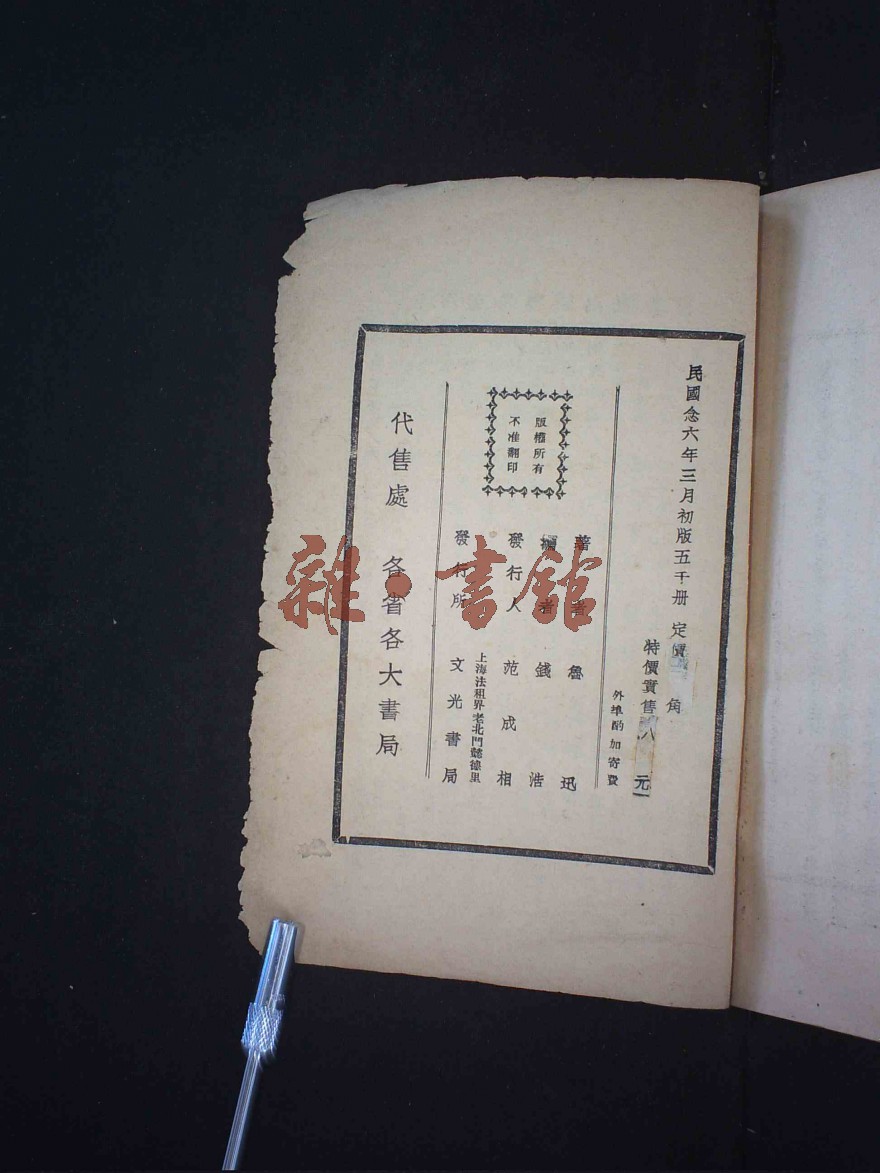 民國念六年三月初版五千册
定價 角
特價實售 八 元
外埠酌加寄費
版權所有
不准翻印
著者 魯迅
編者 錢浩
發行人 范成相
發行所 文光書局
上海法租界老北門懿德里
代售處 各省各大書局
雜·書館